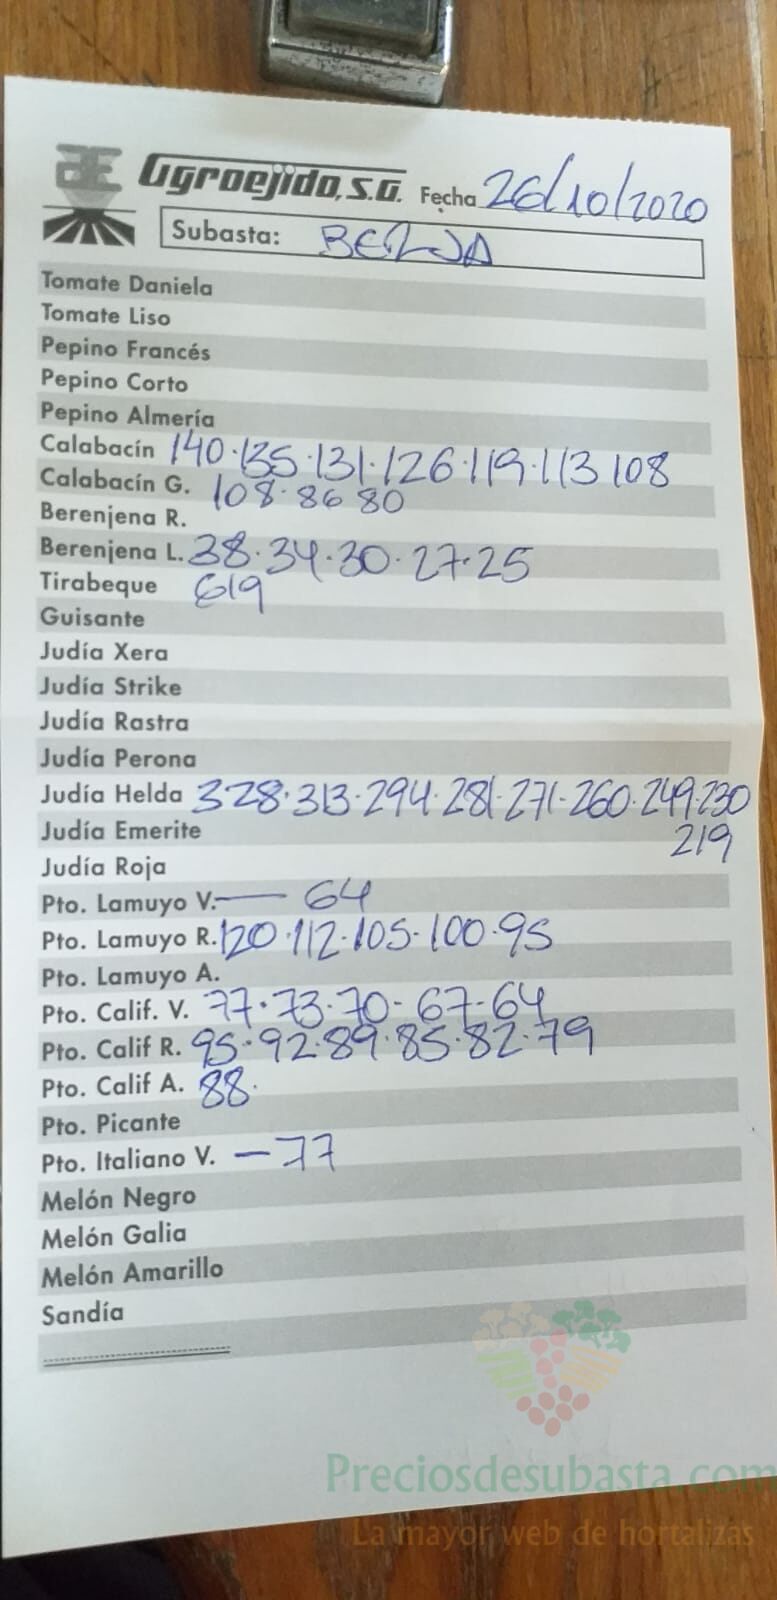 Agroejido, S.A. Fecha 26/10/2020
Subasta: BERJA
Tomate Daniela
Tomate Liso
Pepino Francés
Pepino Corto
Pepino Almería
Calabacín 140·135·131·126·119·113 108
Calabacín G. 108·86 80
Berenjena R.
Berenjena L. 38·34·30·27·25
Tirabeque 619
Guisante
Judía Xera
Judía Strike
Judía Rastra
Judía Perona
Judía Helda 328·313·294·281·271·260·249·230
Judía Emerite 219
Judía Roja
Pto. Lamuyo V. — 64
Pto. Lamuyo R. 120·112·105·100·95
Pto. Lamuyo A.
Pto. Calif. V. 77·73·70-67-64
Pto. Calif R. 95·92·89·85·82·79
Pto. Calif A. 88·
Pto. Picante
Pto. Italiano V. — 77
Melón Negro
Melón Galia
Melón Amarillo
Sandía
Preciosdesubasta.com
La mayor web de hortalizas